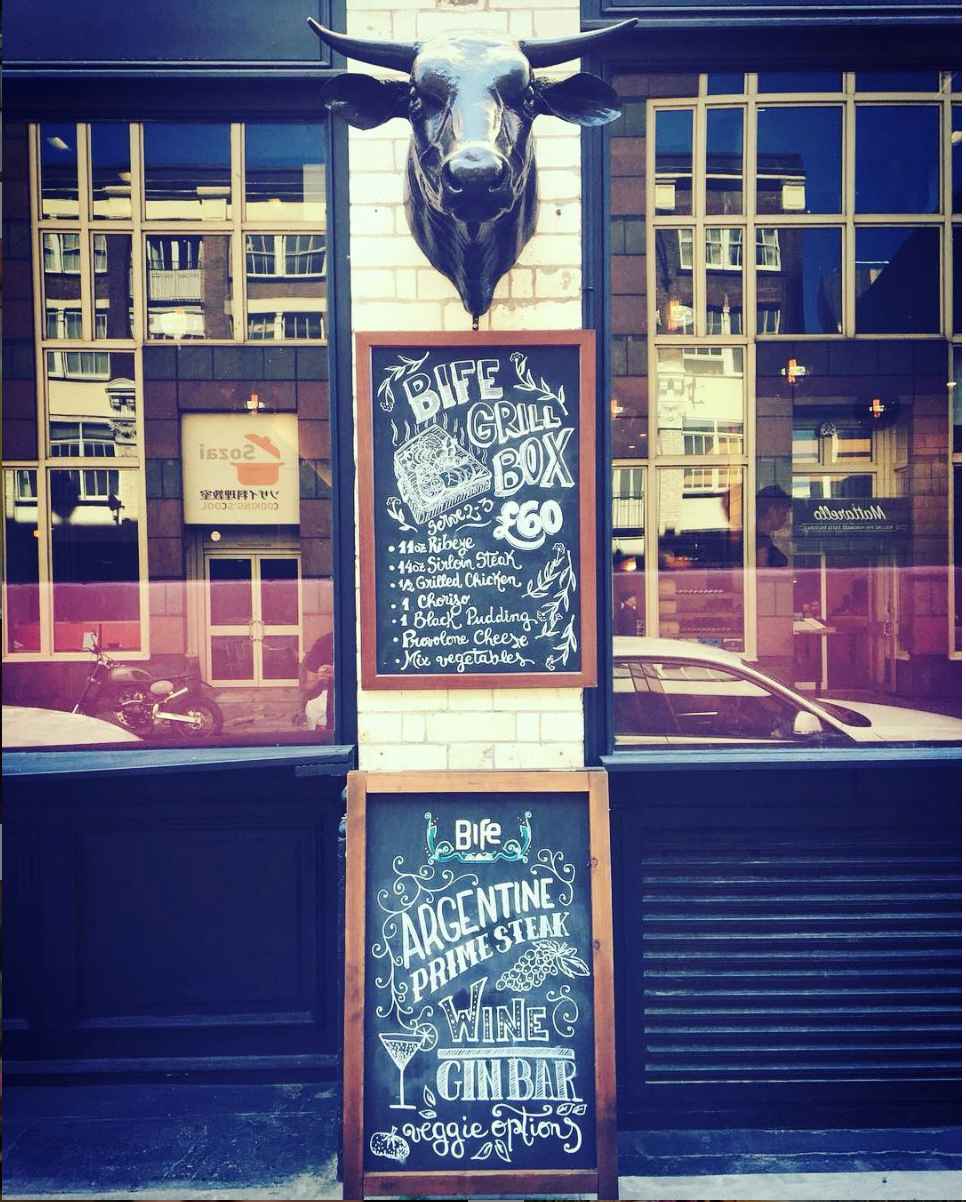 BIFE
GRILL
BOX
Serve 2-3
£60
• 11oz Ribeye
• 14oz Sirloin Steak
• ½ Grilled Chicken
• 1 Choriso
• 1 Black Pudding
• Provolone Cheese
• Mix vegetables
Bife
ARGENTINE
PRIME STEAK
WINE
GIN BAR
veggie options
Sozai
ソザイ料理教室
COOKING SCOOL
Mattarello